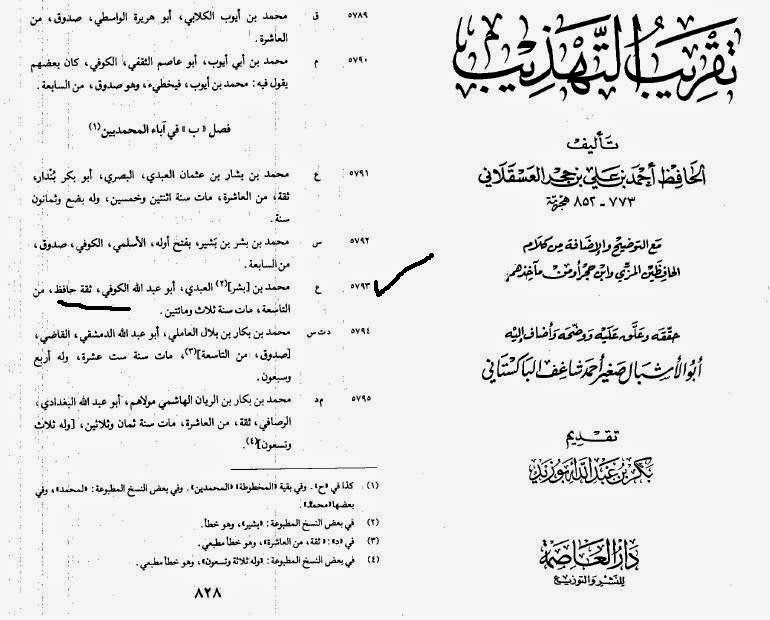 تقريب التهذيب
تأليف
الحافظ أحمد بن علي بن حجر العسقلاني
٧٧٣ - ٨٥٢ هجرية
مع التوضيح والإضافة من كلام
الحافظين المزي وابن حجر أو من مآخذهم
حققه وعلق عليه ووضحه وأضاف إليه
أبو الأشبال صغير أحمد شاغف الباكستاني
تقديم
بكر بن عبد الله أبو زيد
دار العاصمة
للنشر والتوزيع
٥٧٨٩ ق محمد بن أيوب الكلابي، أبو هريرة الواسطي، صدوق، من
العاشرة.
٥٧٩٠ م محمد بن أبي أيوب، أبو عاصم الثقفي، الكوفي، كان بعضهم
يقول فيه: محمد بن أيوب، فيخطىء، وهو صدوق، من السابعة.
فصل «ب» في آباء المحمديين (١)
٥٧٩١ ع محمد بن بشار بن عثمان العبدي، البصري، أبو بكر بُنْدار،
ثقة، من العاشرة، مات سنة اثنتين وخمسين، وله بضع وثمانون
سنة.
٥٧٩٢ س محمد بن بشر بن بَشير، بفتح أوله، الأسلمي، الكوفي، صدوق،
من السابعة.
٥٧٩٣ ع محمد بن [بشر] (٢) العبدي، أبو عبد الله الكوفي، ثقة حافظ، من
التاسعة، مات سنة ثلاث ومائتين.
٥٧٩٤ دت س محمد بن بكار بن بلال العاملي، أبو عبد الله الدمشقي، القاضي،
[صدوق، من التاسعة] (٣)، مات سنة ست عشرة، وله أربع
وسبعون.
٥٧٩٥ م د محمد بن بكار بن الريان الهاشمي مولاهم، أبو عبد الله البغدادي،
الرصافي، ثقة، من العاشرة، مات سنة ثمان وثلاثين، [وله ثلاث
وتسعون] (٤).
(١) كذا في «ح». وفي بقية «المخطوطة» «المحمدين». وفي بعض النسخ المطبوعة: «لمحمد»، وفي
بعضها «محمد».
(٢) في بعض النسخ المطبوعة: «بشير»، وهو خطأ.
(٣) في «د»: «ثقة، من العاشرة»، وهو خطأ مطبعي.
(٤) في بعض النسخ المطبوعة: «وله ثلاثة وتسعون»، وهو خطأ مطبعي.
٨٢٨